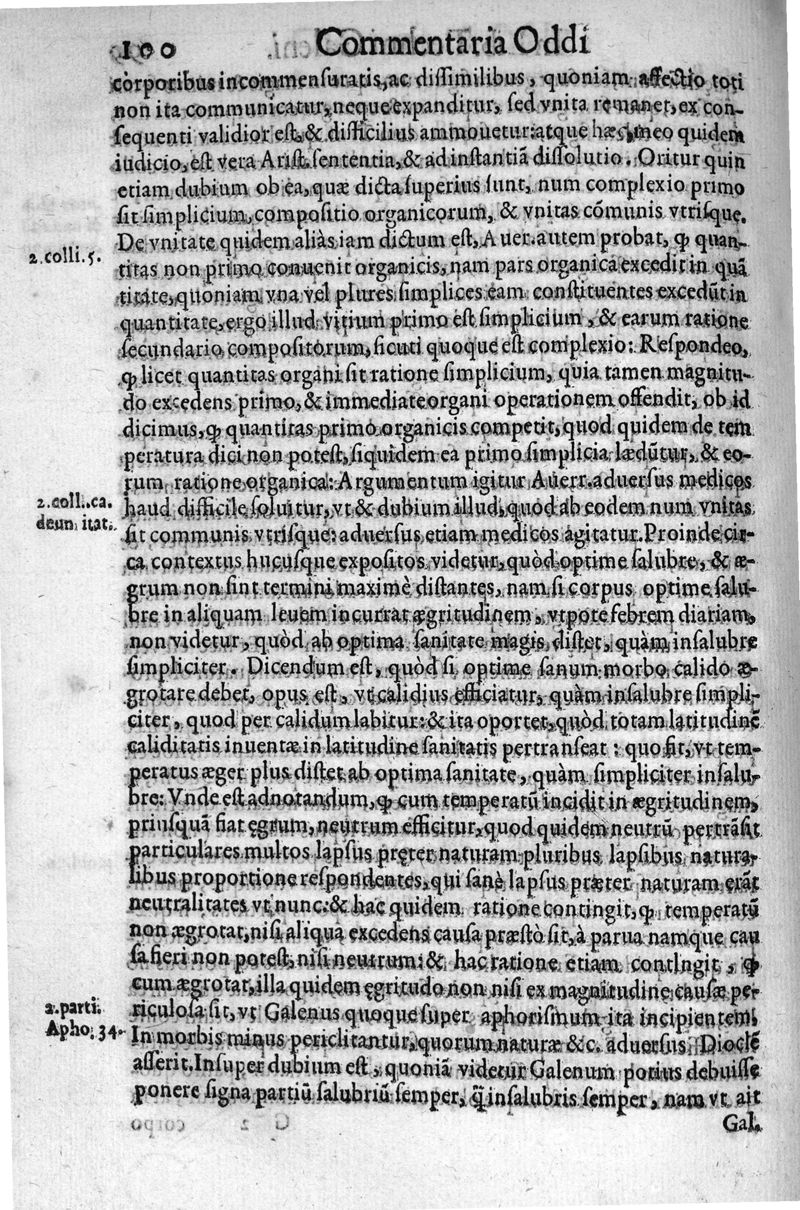 100 Commentaria Oddi
corporibus incommensuratis, ac dissimilibus, quoniam affectio toti
non ita communicatur, neque expanditur, sed vnita remanet, ex con-
sequenti validior est, & difficilius ammouetur: atque hæc, meo quidem
iudicio, est vera Arist. sententia, & ad instantiã dissolutio. Oritur quin
etiam dubium ob ea, quæ dicta superius sunt, num complexio primo
sit simplicium, compositio organicorum, & vnitas cõmunis vtrisque.
De vnitate quidem aliàs iam dictum est, Auer. autem probat, ꝙ quan-
2. colli. 5.
titas non primo conuenit organicis, nam pars organica excedit in quã
titate, quoniam vna vel plures simplices eam constituentes excedũt in
quantitate, ergo illud vitium primo est simplicium, & earum ratione
secundario compositorum, sicuti quoque est complexio: Respondeo,
ꝙ licet quantitas organi sit ratione simplicium, quia tamen magnitu-
do excedens primo, & immediate organi operationem offendit, ob id
dicimus, ꝙ quantitas primo organicis competit, quod quidem de tem
peratura dici non potest, siquidem ea primo simplicia lædũtur, & eo-
rum ratione organica: Argumentum igitur Auerr. aduersus medicos
2. coll. ca.
haud difficile soluitur, vt & dubium illud, quod ab eodem num vnitas
de un itat.
sit communis vtrisque: aduersus etiam medicos agitatur. Proinde cir-
ca contextus hucusque expositos videtur, quòd optime salubre, & æ-
grum non sint termini maximè distantes, nam si corpus optime salu-
bre in aliquam leuem incurrat ægritudinem, vtpote febrem diariam,
non videtur, quòd ab optima sanitate magis distet, quàm insalubre
simpliciter. Dicendum est, quòd si optime sanum morbo calido æ-
grotare debet, opus est, vt calidius efficiatur, quàm insalubre simpli-
citer, quod per calidum labitur: & ita oportet, quòd totam latitudinẽ
caliditatis inuentæ in latitudine sanitatis pertranseat: quo fit, vt tem-
peratus æger plus distet ab optima sanitate, quàm simpliciter insalu-
bre: Vnde est adnotandum, ꝙ cum temperatũ incidit in ægritudinem,
priusquã fiat ęgrum, neutrum efficitur, quod quidem neutrũ pertrãsit
particulares multos lapsus pręter naturam pluribus lapsibus natura-
libus proportione respondentes, qui sanè lapsus præter naturam erãt
neutralitates vt nunc: & hac quidem ratione contingit, ꝙ temperatũ
non ægrotat, nisi aliqua excedens causa præstò sit, à parua namque cau
sa fieri non potest, nisi neutrum: & hac ratione etiam contingit, ꝙ
cum ægrotat, illa quidem ęgritudo non nisi ex magnitudine causæ per
2. parti.
riculosa sit, vt Galenus quoque super aphorismum ita incipientem
Apho. 34.
In morbis minus periclitantur, quorum naturæ &c. aduersus Dioclẽ
asserit. Insuper dubium est, quoniã videtur Galenum potius debuisse
ponere signa partiũ salubriũ semper, q̃ insalubris semper, nam vt ait
Gal.